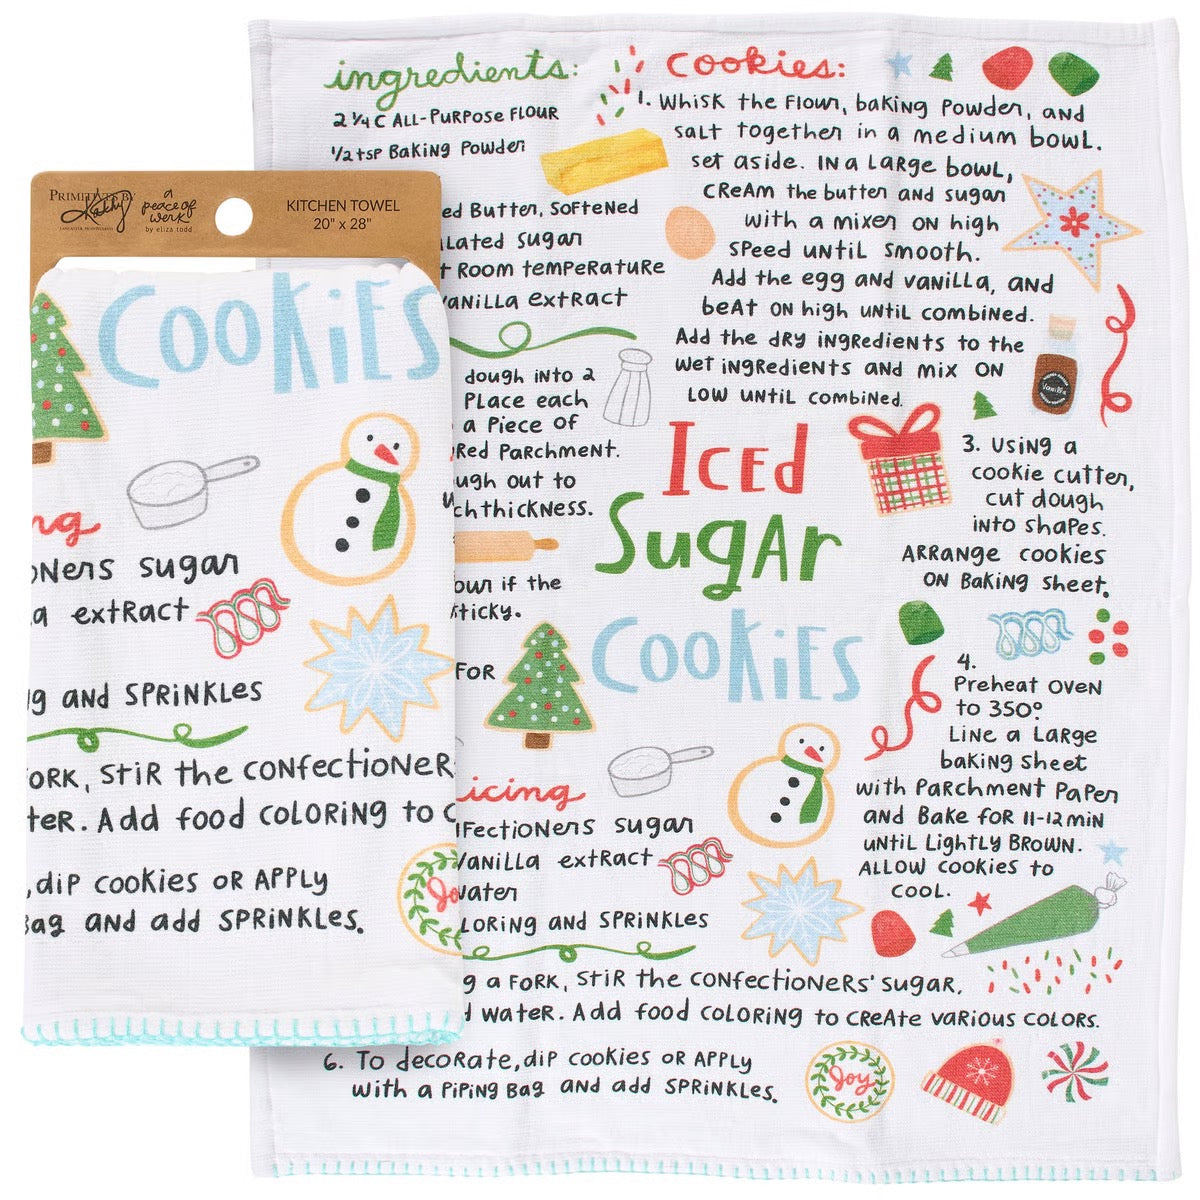 PRIMITIVES BY
Kathy
LANCASTER, PENNSYLVANIA
a
peace of
werk
by eliza todd
KITCHEN TOWEL
20" x 28"
Cookies
ng
oners sugar
a extract
g and sprinkles
ork, stir the confectioner
ter. Add food coloring to c
, dip cookies or apply
bag and add sprinkles.
Jo
ingredients:
2 1/4 C All-Purpose Flour
1/2 tsp Baking Powder
ed Butter, Softened
lated sugar
t room temperature
vanilla extract
dough into 2
Place each
a piece of
red parchment.
ugh out to
ch thickness.
our if the
sticky.
for
icing
fectioners sugar
vanilla extract
water
loring and sprinkles
g a fork, stir the confectioners' sugar,
d water. Add food coloring to create various colors.
6. To decorate, dip cookies or apply
with a piping bag and add sprinkles.
Joy
cookies:
1. Whisk the flour, baking powder, and
salt together in a medium bowl.
set aside. In a large bowl,
cream the butter and sugar
with a mixer on high
speed until smooth.
Add the egg and vanilla, and
beat on high until combined.
Add the dry ingredients to the
wet ingredients and mix on
low until combined.
Vanilla
Iced
Sugar
Cookies
3. Using a
cookie cutter,
cut dough
into shapes.
Arrange cookies
on baking sheet.
4.
Preheat oven
to 350°.
Line a large
baking sheet
with parchment paper
and bake for 11-12 min
until lightly brown.
Allow cookies to
cool.